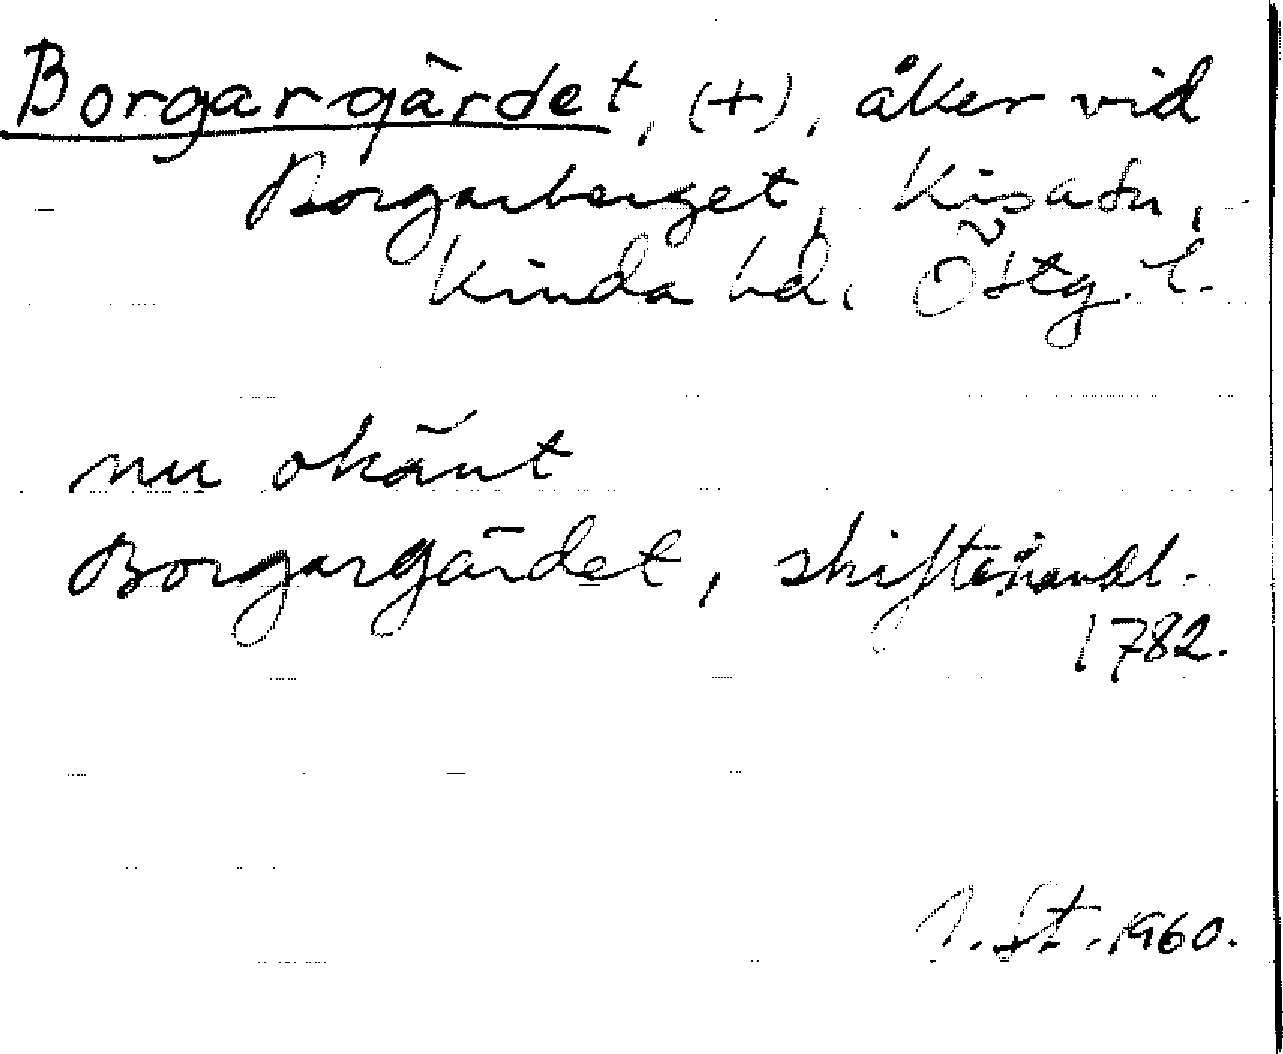 Borgargärdet, (+), åker vid
Borgarberget, Kisa sn,
Kinda hd, Östg. l.
nu okänt
Borgargärdet, skifteshandl.
1782.
St. 1960.